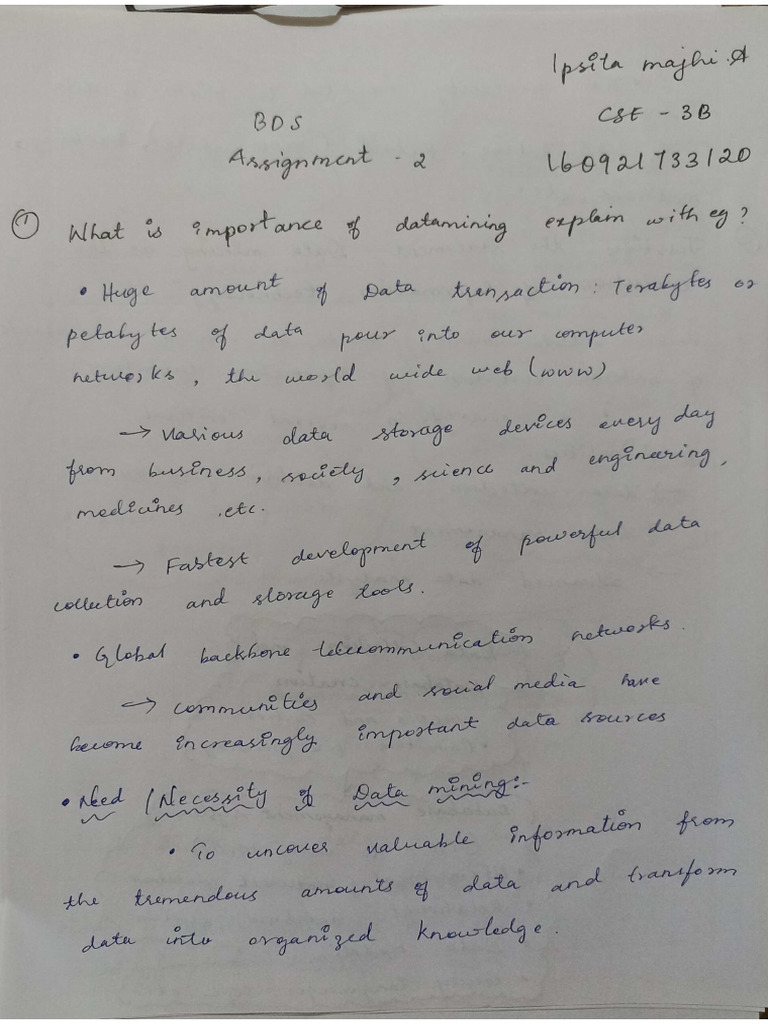 Ipsita majhi. A
BDS
CSE - 3B
Assignment - 2
160921733120
① What is importance of datamining explain with eg?
• Huge amount of Data transaction: Terabytes or
petabytes of data pour into our computer
networks, the world wide web (www)
→ Various data storage devices every day
from business, society, science and engineering,
medicines .etc.
→ Fastest development of powerful data
collection and storage tools.
• Global backbone telecommunication networks.
→ communities and social media have
become increasingly important data sources
• Need / Necessity of Data mining:-
• To uncover valuable information from
the tremendous amounts of data and transform
data into organized knowledge.